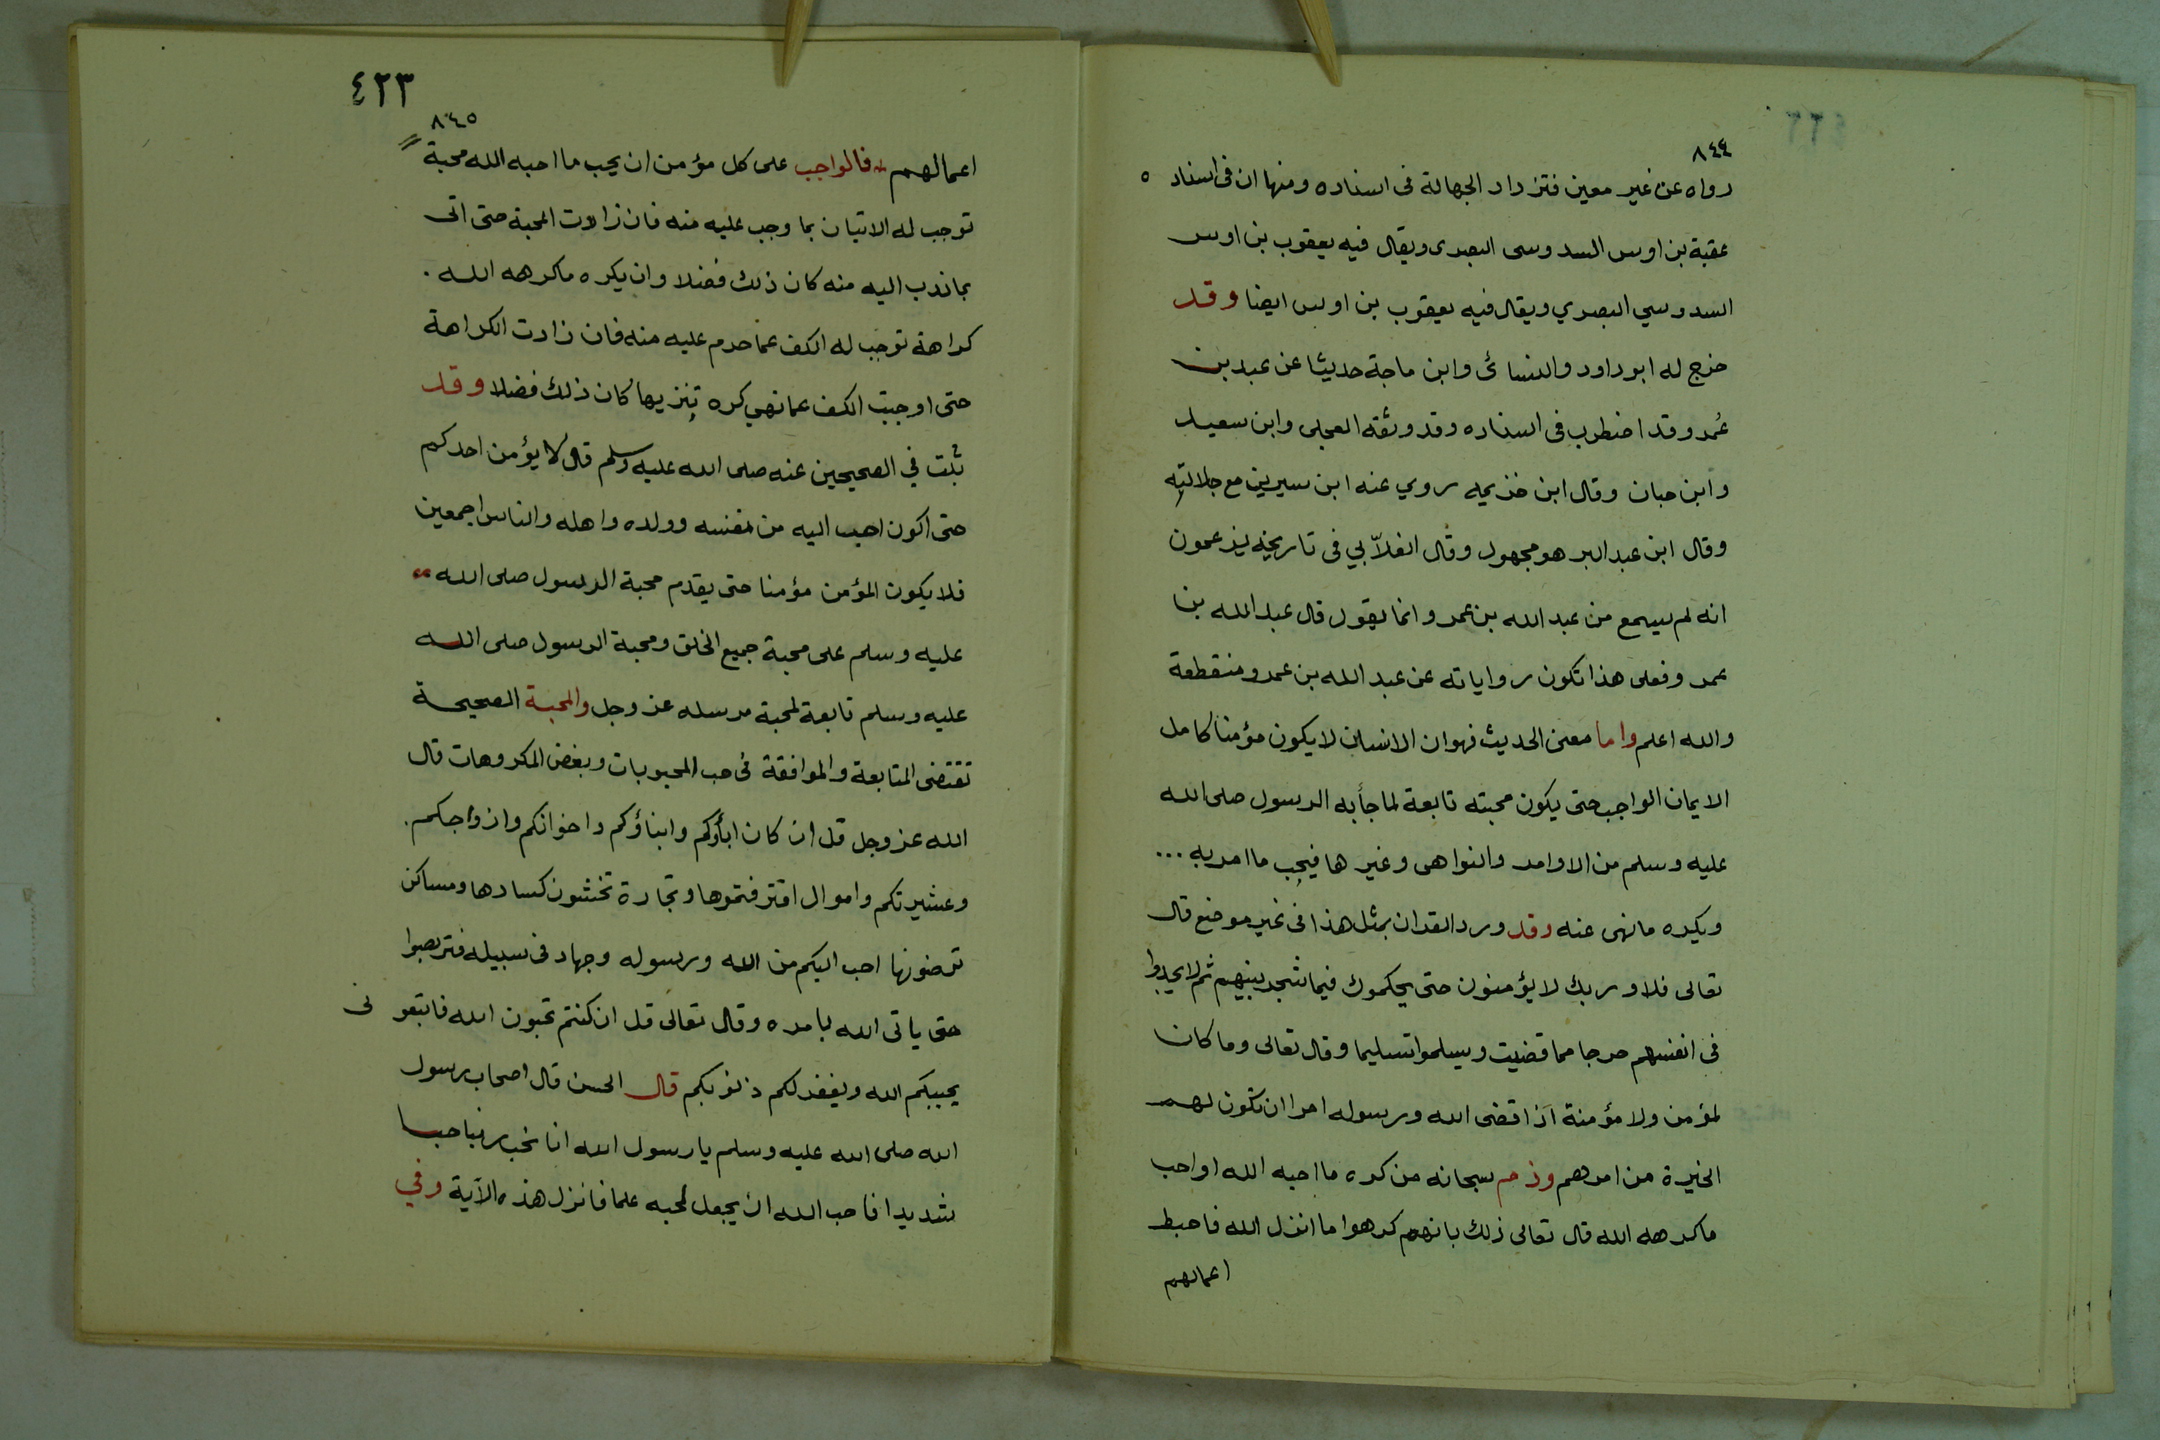 ٨٤٤
رواه عن غير معين فتزداد الجهالة فى اسناده ومنها ان فى اسناد ه
عقبة بن اوس السدوسى البصرى ويقال فيه يعقوب بن اوس
السدوسي البصري ويقال فيه يعقوب بن اوس ايضا وقد
خرج له ابو داود والنسائى وابن ماجة حديثا عن عبد بن
عمر وقد اضطرب فى اسناده وقد وثقه العجلى وابن سعيد
وابن حبان وقال ابن خزيمه روي عنه ابن سيرين مع جلالته
وقال ابن عبد البر هو مجهول وقال الغلابي فى تاريخه يزعمون
انه لم يسمع من عبد الله بن عمر وانما يقول قال عبد الله بن
عمر وفعلى هذا تكون رواياته عن عبد الله بن عمرو منقطعة
والله اعلم واما معنى الحديث فهو ان الانسان لا يكون مؤمنا كامل
الايمان الواجب حتى يكون محبته تابعة لما جأ به الرسول صلى الله
عليه وسلم من الاوامر والنواهى وغيرها فيحب ما امر به ...
ويكره ما نهى عنه وقد ورد القران بمثل هذا فى غير موضع قال
تعالى فلا وربك لا يؤمنون حتى يحكموك فيما شجر بينهم ثم لا يجدوا
فى انفسهم حرجا مما قضيت ويسلموا تسليما وقال تعالى وما كان
لمؤمن ولا مؤمنة اذا قضى الله ورسوله امرا ان تكون لهم
الخيرة من امرهم وذم سبحانه من كره ما احبه الله او احب
ما كرهه الله قال تعالى ذلك بانهم كرهوا ما انزل الله فاحبط
اعمالهم
٤٢٣
٨٤٥
اعمالهم فالواجب على كل مؤمن ان يحب ما احبه الله محبة
توجب له الاتيان بما وجب عليه منه فان زادت المحبة حتى اتى
بما ندب اليه منه كان ذلك فضلا وان يكره ما كرهه الله .
كراهة توجب له الكف عما حرم عليه منه فان زادت الكراهة
حتى اوجبت الكف عما نهي كره تنزيها كان ذلك فضلا وقد
ثبت في الصحيحين عنه صلى الله عليه وسلم قال لا يؤمن احدكم
حتى اكون احب اليه من نفسه وولده واهله والناس اجمعين
فلا يكون المؤمن مؤمنا حتى يقدم محبة الرسول صلى الله
عليه وسلم على محبة جميع الخلق ومحبة الرسول صلى الله
عليه وسلم تابعة لمحبة مرسله عز وجل والمحبة الصحيحة
تقتضى المتابعة والموافقة فى حب المحبوبات وبغض المكروهات قال
الله عز وجل قل ان كان ابأؤكم وابناؤكم واخوانكم وازواجكم .
وعشيرتكم واموال اقترفتموها وتجارة تخشون كسادها ومساكن
ترضونها احب اليكم من الله ورسوله وجهاد فى سبيله فتربصوا
حتى ياتى الله بامره وقال تعالى قل ان كنتم تحبون الله فاتبعو نى
يحببكم الله ويغفر لكم ذنوبكم قال الحسن قال اصحاب رسول
الله صلى الله عليه وسلم يا رسول الله انا نحب ربنا حبا
شديدا فاحب الله ان يجعل لحبه علما فانزل هذه الآية وفي